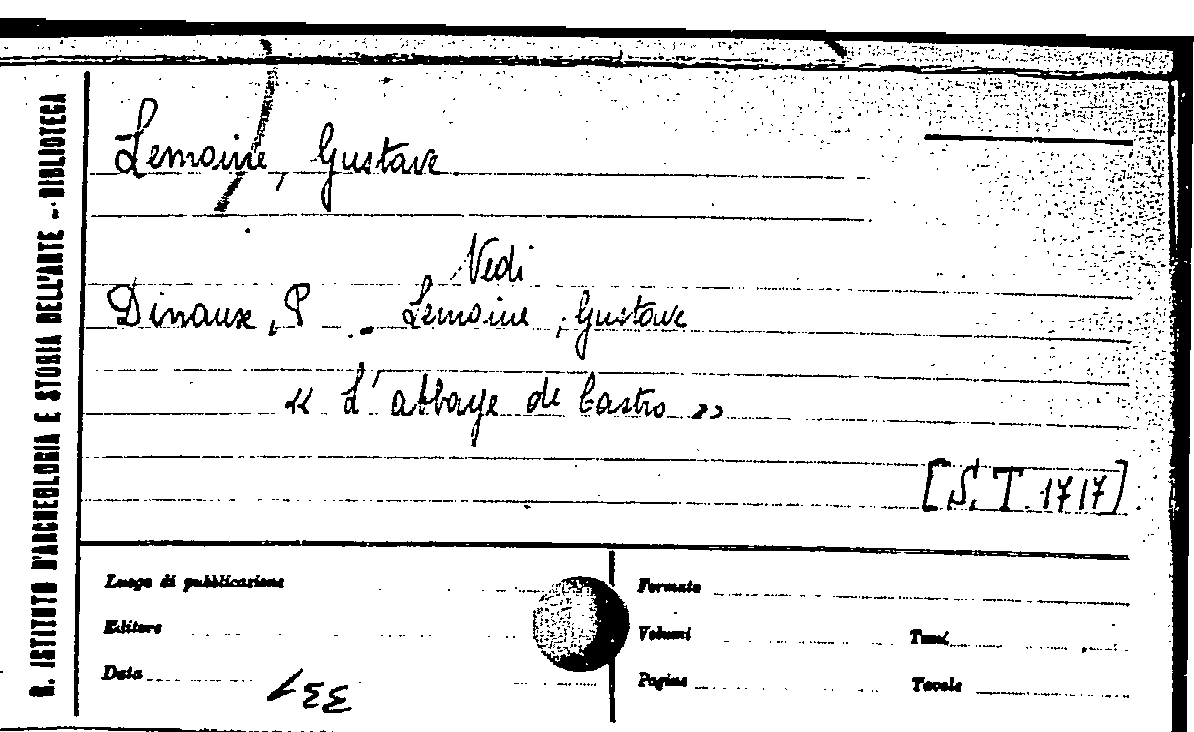 R. ISTITUTO D'ARCHEOLOGIA E STORIA DELL'ARTE - BIBLIOTECA
Lemoine, Gustave.
Vedi
Dinaux, P. - Lemoine, Gustave
« L'abbaye de Castro »
[S. T. 1717]
Luogo di pubblicazione
Editore
Data
Formato
Volumi
Tomi
Pagine
Tavole
337